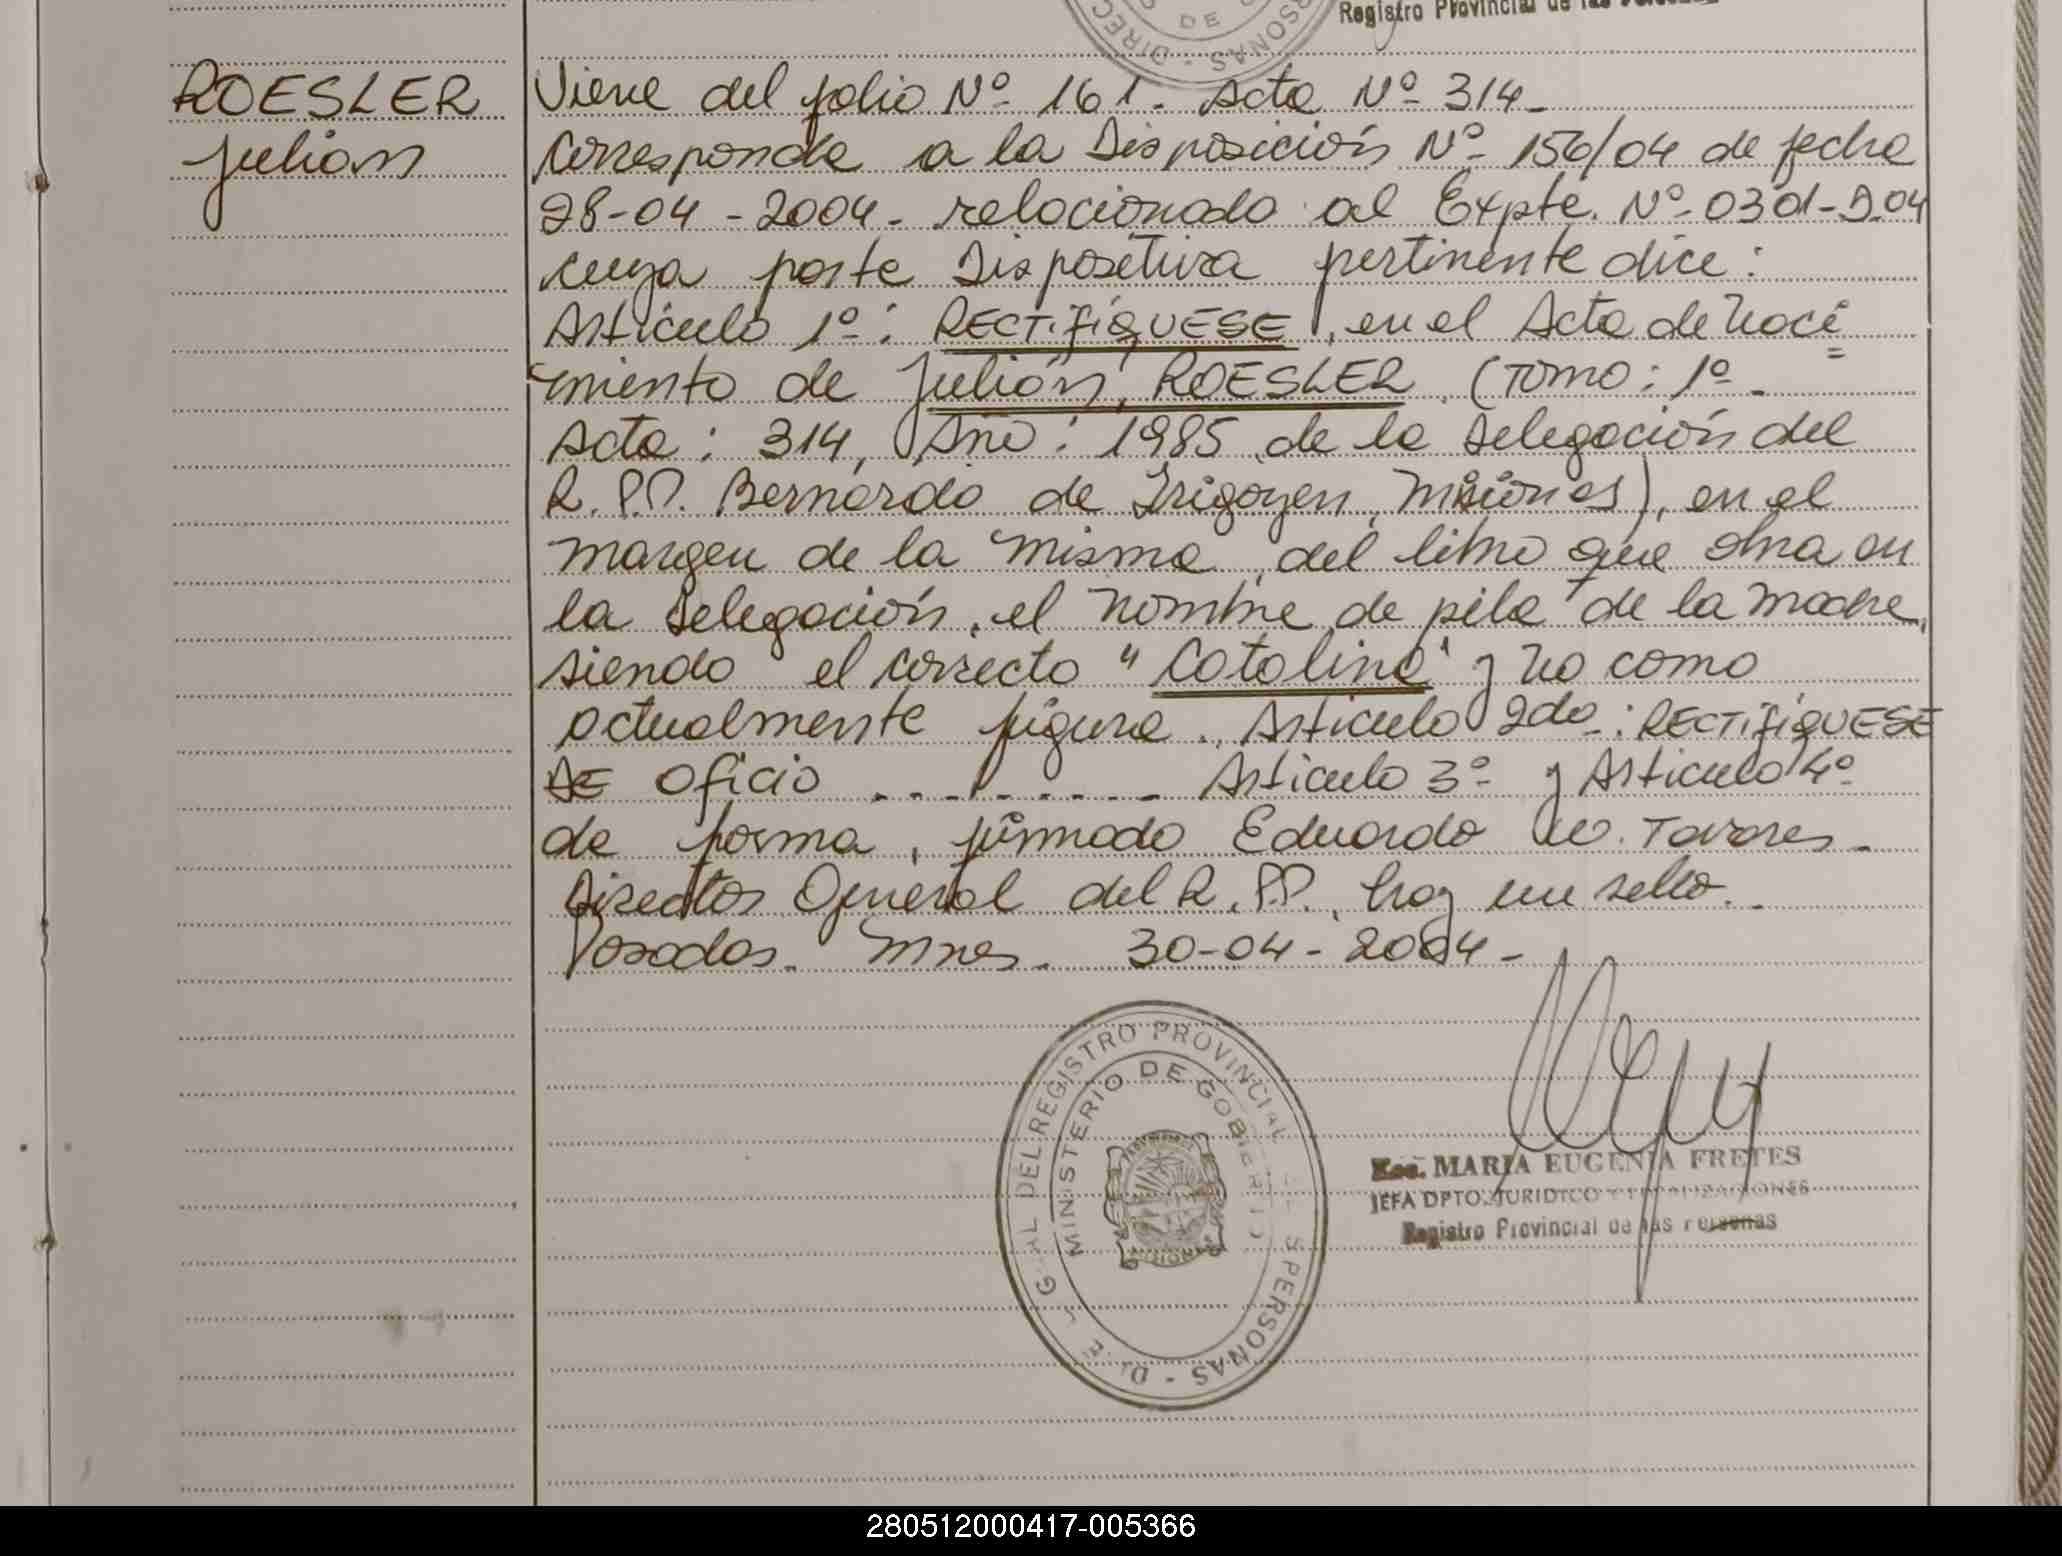 Registro Provincial de las Personas
ROESLER
Julián
Viene del folio Nº 161. Acta Nº 314.
Corresponde a la Disposición Nº 156/04 de fecha
28-04-2004. relacionado al Expte. Nº
cuya parte Dispositiva pertinente dice:
Artículo 1º: RECTIFÍQUESE, en el Acta de naci
miento de Julián, ROESLER. (TOMO: 1º
Acta: 314, Año: 1985, de la Delegación del
R.P.P. Bernardo de Irigoyen, Misiones), en el
margen de la misma, del libro que obra en
la Delegación, el nombre de pila de la madre,
siendo el correcto "Catalina" y no como
actualmente figura. Artículo 2do: RECTIFÍQUESE
DE Oficio ......... Artículo 3º y Artículo 4º
de forma, firmado Eduardo Tavares.
Director General del R.P.P., hay un sello.
Posadas. Mnes. 30-04-2004.
DEL REGISTRO PROVINCIAL PERSONAS
MINISTERIO DE GOBIERNO
Esc. MARIA EUGENIA FRETES
JEFA DPTO. JURIDICO Y
Registro Provincial de las Personas
280512000417-005366